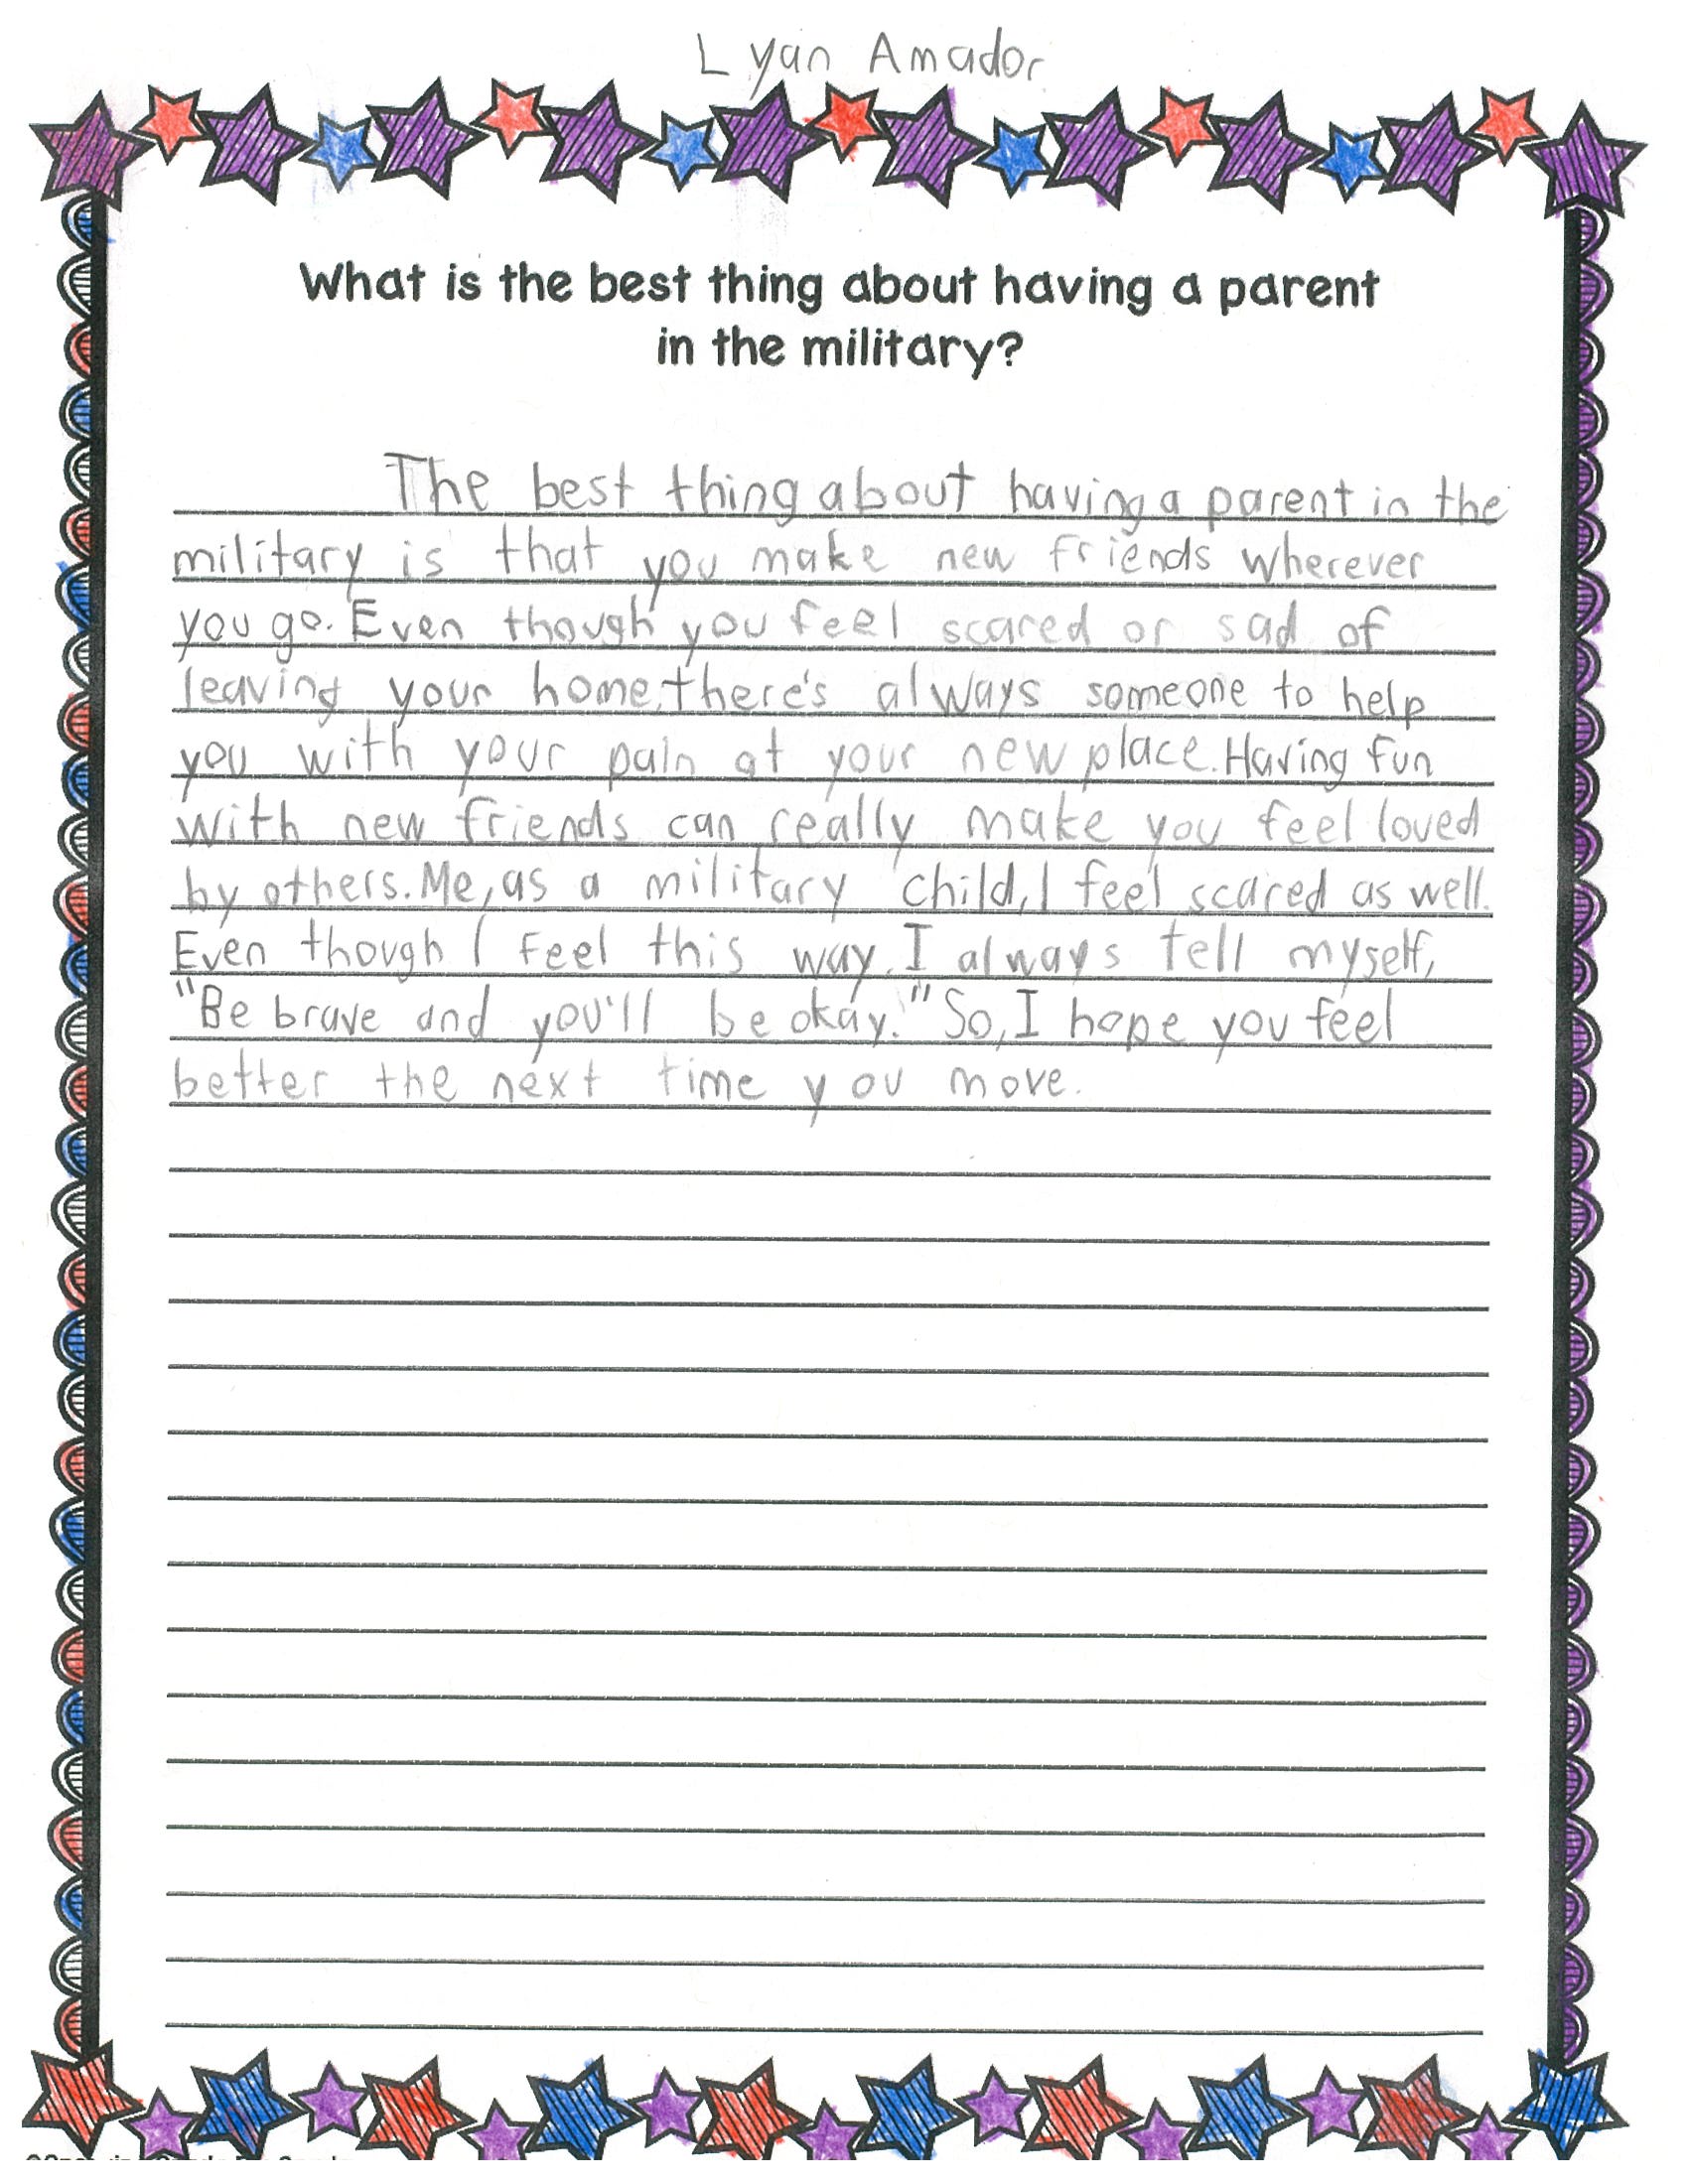 Lyan Amador
What is the best thing about having a parent
in the military?
The best thing about having a parent in the
military is that you make new friends wherever
you go. Even though you feel scared or sad of
leaving your home, there's always someone to help
you with your pain at your new place. Having fun
with new friends can really make you feel loved
by others. Me, as a military child, I feel scared as well.
Even though I feel this way, I always tell myself,
"Be brave and you'll be okay." So, I hope you feel
better the next time you move.